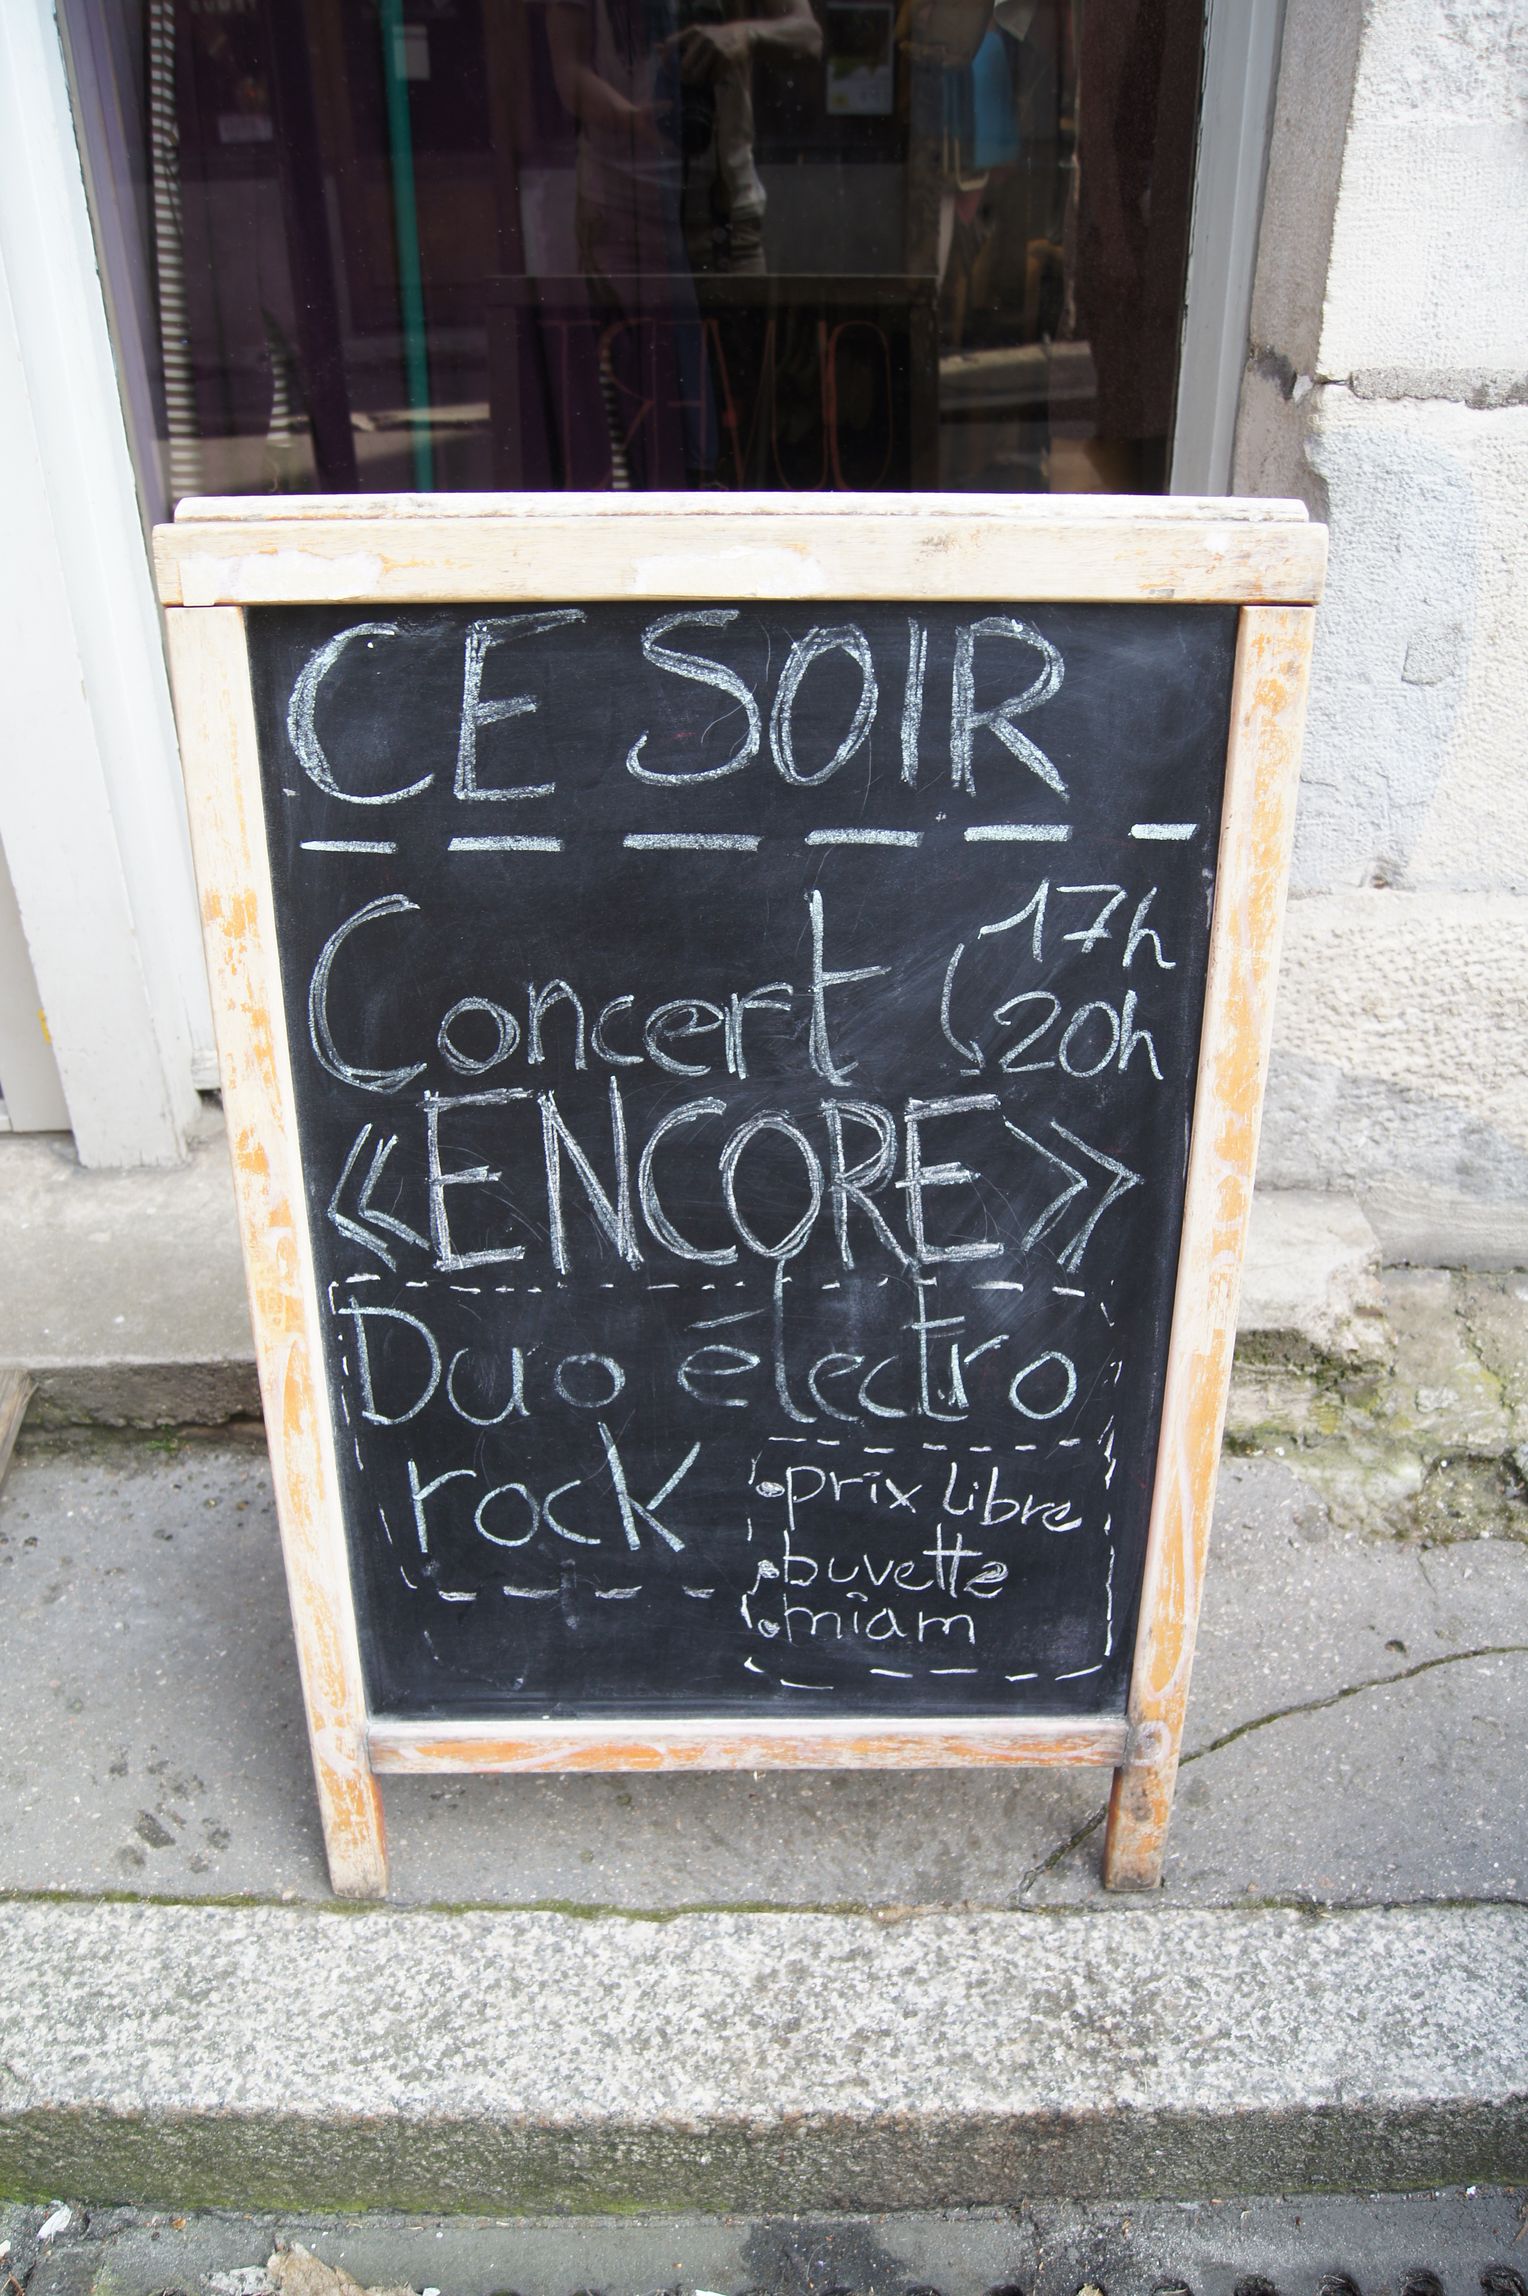 OUVERT
CE SOIR
Concert 17h
20h
«ENCORE»
Duo électro
rock
•prix libre
•buvette
•miam